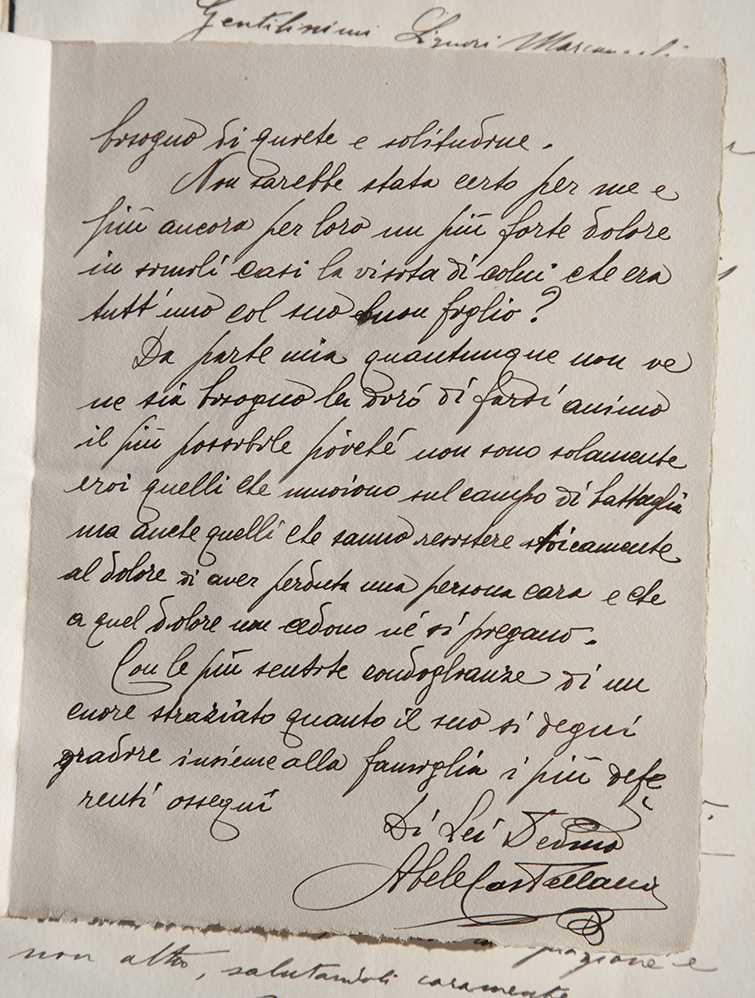 Gentilissimi Signori
bisogno di quiete e solitudine.
Non sarebbe stata certo per me e
più ancora per loro un più forte dolore
in simili casi la visita di colui che era
tutt'uno col suo buon figlio?
Da parte mia quantunque non ve
ne sia bisogno le dirò di farsi animo
il più possibile poiché non sono solamente
eroi quelli che muoiono sul campo di battaglia
ma anche quelli che sanno resistere stoicamente
al dolore di aver perduta una persona cara e che
a quel dolore non cedono né si piegano.
Con le più sentite condoglianze di un
cuore straziato quanto il suo si degni
gradire insieme alla famiglia i più defe
renti ossequi
Di Lei Devmo
Abele Castellani
non altro, salutandoli caramente